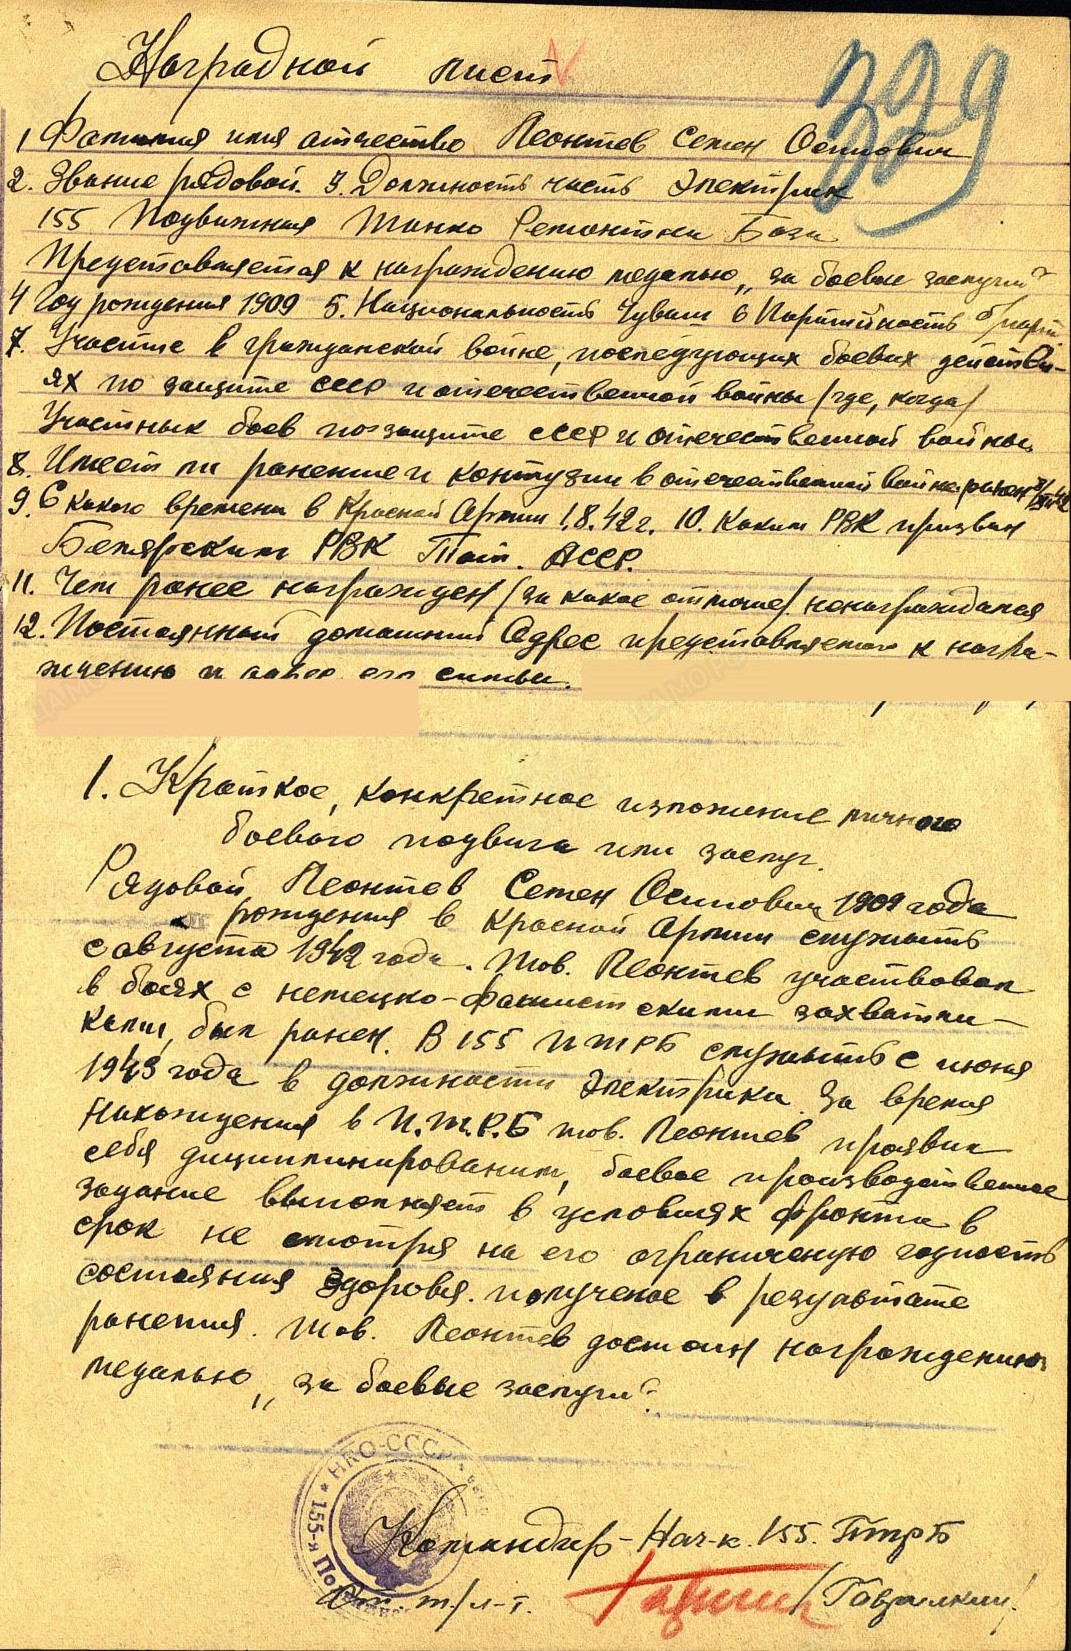 Наградной лист
329
1 Фамилия имя отчество Леонтев Семен Осипович
2. Звание рядовой. 3. Должность часть Электрик
155 Подвижная Танко Ремонтна База
Представляется к награждению медалью „за боевые заслуги"
4 Год рождения 1909 5. Национальность Чуваш 6 Партийность б/парт
7. Участие в гражданской войне, последующих боевых действи-
ях по защите СССР и отечественной войны /где, когда/
Участнык боев по защите СССР и отечественной войны
8. Имеет ли ранение и контузии в отечественной войне. ранен
9. С какого времени в Красной Армии 1.8.42 г. 10. Каким РВК призван
Билярским РВК Тат. АССР.
11. Чем ранее награжден /за какое отличие/ ненаграждался
12. Постоянный домашний Адрес представляемого к награ-
ждению и адрес его семьи.
1. Краткое, конкретное изложение личного
боевого подвига или заслуг.
Рядовой Леонтев Семен Осипович 1909 года
рождения в Красной Армии служить
с августа 1942 года. Тов. Леонтев участвовал
в боях с немецко-фашистскими захватчи-
ками, был ранен. В 155 ПТРБ служить с июня
1943 года в должности Электрика. За время
нахождения в П.Т.Р.Б тов. Леонтев проявил
себя дициплинированим, боевое производственное
задание выполняет в условиях фронта в
срок не смотря на его ограниченую годность
состояния здоровя. полученое в результате
ранения. Тов. Леонтев достоин награждению
медалью „за боевые заслуги"
НКО-СССР
155-я
Командир-Нач-к. 155. ПтрБ
т/л-т. /Гаврилкин/